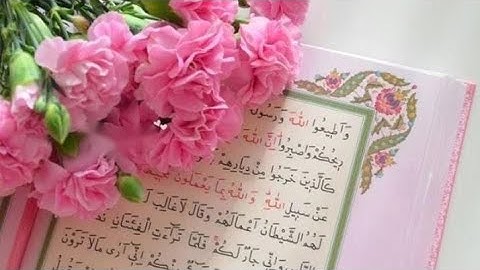 وَأَطِيعُوا اللهَ وَرَسُولَ
رِيحُكُمْ وَاصْبِرُوا إِنَّ اللهَ
كَالَّذِينَ خَرَجُوا مِنْ دِيَارِهِمْ
عَنْ سَبِيلِ اللهِ وَاللهُ بِمَا يَعْمَلُونَ
لَهُمُ الشَّيْطَانُ أَعْمَالَهُمْ وَقَالَ لَا غَالِبَ
وَإِنِّي جَارٌ لَكُمْ فَلَمَّا تَرَاءَتِ الْفِئَتَانِ
مِنْكُمْ إِنِّي أَرَى مَا لَا تَرَوْنَ